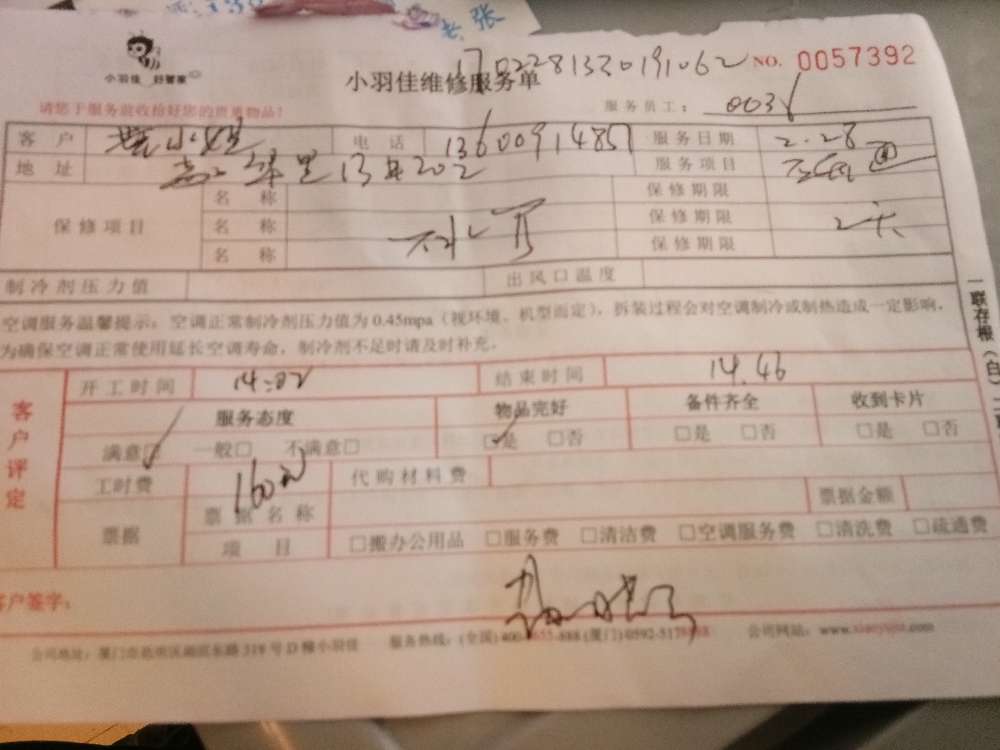 张
小羽佳 好管家
小羽佳维修服务单
1702281330191062 NO. 0057392
请您于服务前收拾好您的贵重物品!
服务员工:
客户 小姐 电话 13600914857 服务日期 2.28
地址 里13 202 服务项目
保修项目
名称 保修期限
名称 保修期限 2天
名称 保修期限
制冷剂压力值 出风口温度
空调服务温馨提示:空调正常制冷剂压力值为0.45mpa(视环境、机型而定),拆装过程会对空调制冷或制热造成一定影响,
为确保空调正常使用延长空调寿命,制冷剂不足时请及时补充。
一联存根(白)
客户评定
开工时间 14:02 结束时间 14.46
服务态度 物品完好 备件齐全 收到卡片
满意□ 一般□ 不满意□ □是 □否 □是 □否 □是 □否
工时费 160元 代购材料费
票据 票据名称 票据金额
项目 □搬办公用品 □服务费 □清洁费 □空调服务费 □清洗费 □疏通费
客户签字:
公司地址:厦门市 319号D幢小羽佳 服务热线:(全国)400- -888(厦门)0592-517 公司网站:www.